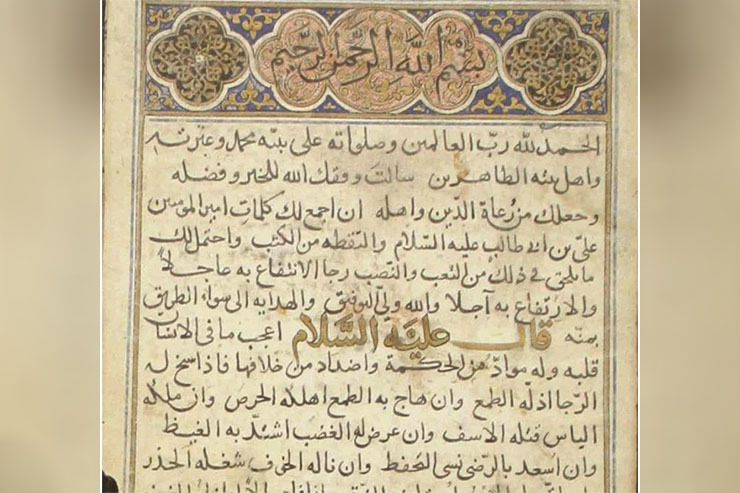 بسم الله الرحمن الرحيم
الحمد لله رب العالمين وصلواته على نبيه محمد وعترته
واهل بيته الطاهرين سالت وفقك الله للخير وفضله
وجعلك من رعاة الدين واهله ان اجمع لك كلمات امير المومنين
علي بن ابي طالب عليه السلام والتقطه من الكتب واحتمل لك
ما يلحقني في ذلك من التعب والنصب رجا الانتفاع به عاجلا
والارتفاع به آجلا والله ولي التوفيق والهدايه الى سواء الطريق
بمنه قال عليه السلام اعجب ما في الانسان
قلبه وله مواد من الحكمة واضداد من خلافها فاذا سنح له
الرجا اذله الطمع وان هاج به الطمع اهلكه الحرص وان ملكه
الياس قتله الاسف وان عرض له الغضب اشتد به الغيظ
وان اسعد بالرضى نسى التحفظ وان ناله الخوف شغله الحذر